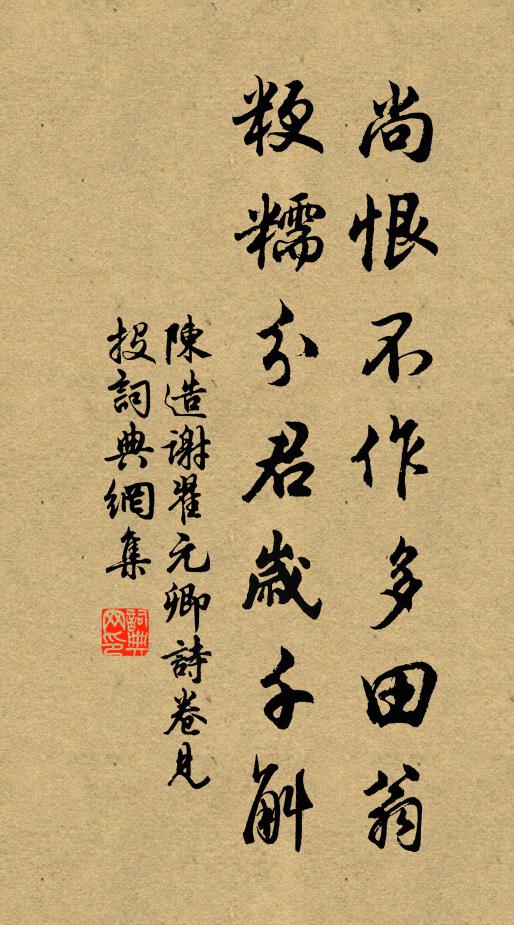 尚恨不作多田翁
粳糯分君歲千斛
陳造謝翟元卿詩卷見
投詞典網集
詞典網印